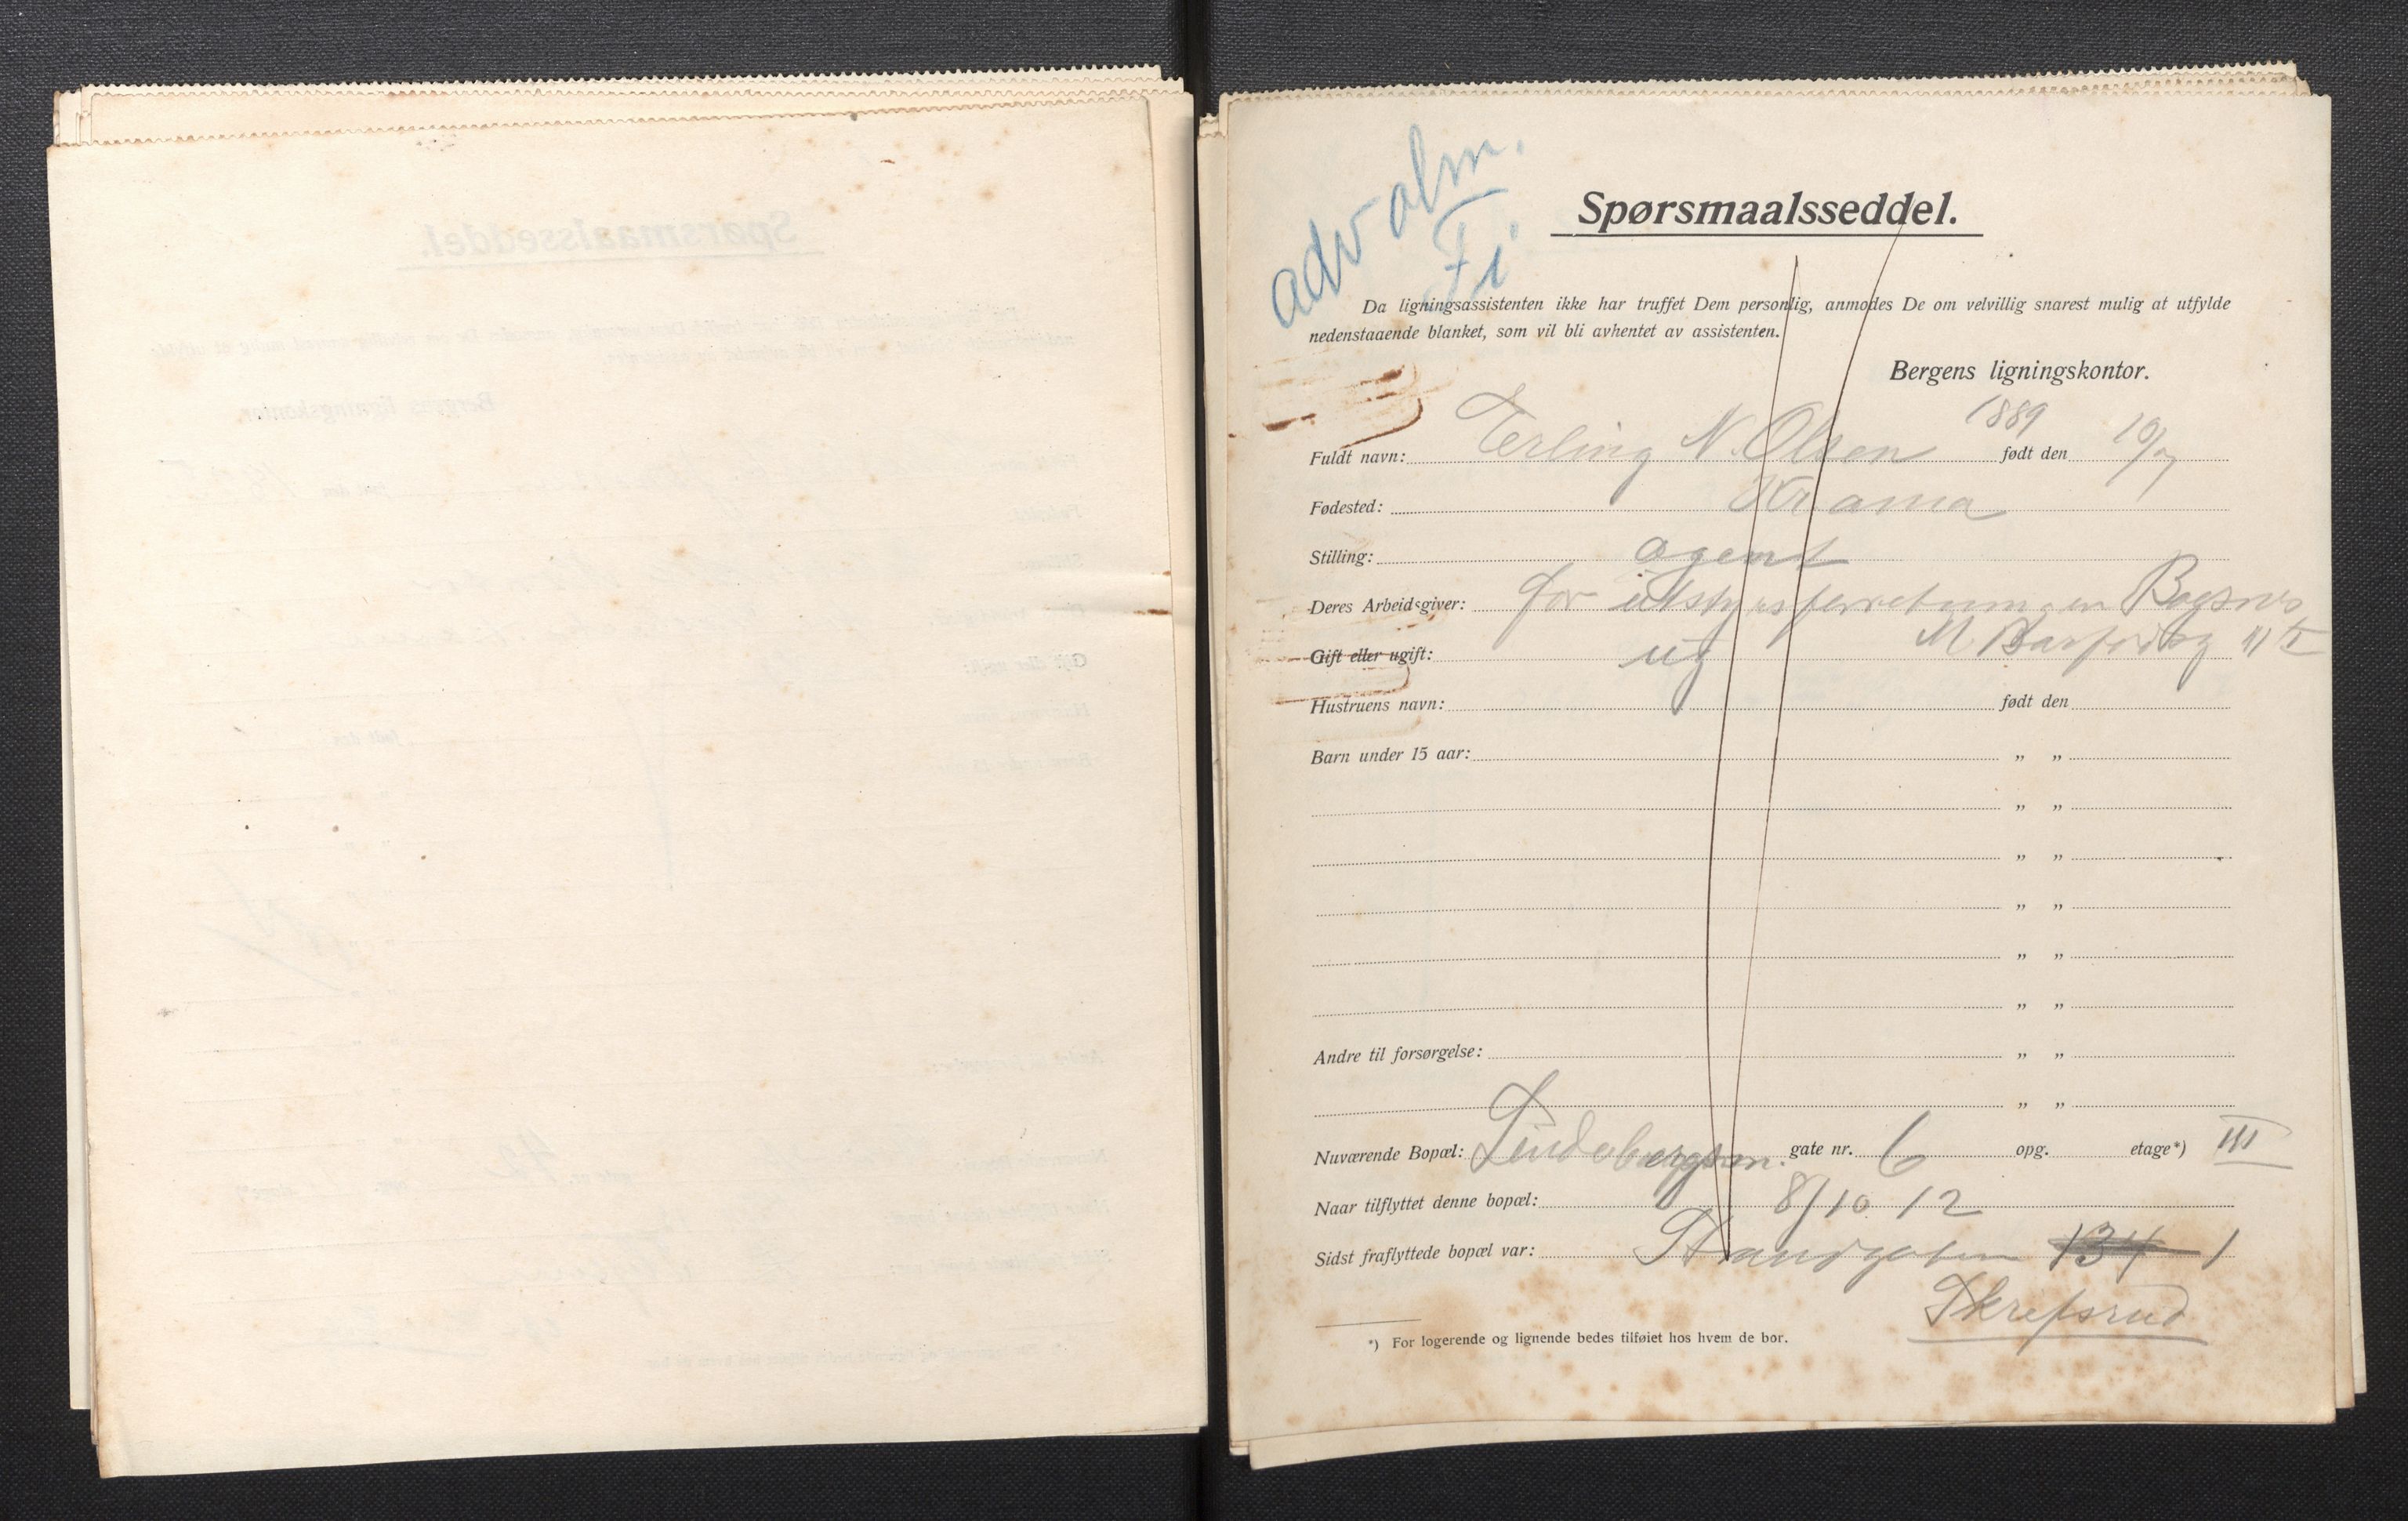 adv alm.
Fi
Spørsmaalsseddel.
Da ligningsassistenten ikke har truffet Dem personlig, anmodes De om velvillig snarest mulig at utfylde
nedenstaaende blanket, som vil bli avhentet av assistenten.
Bergens ligningskontor.
1889
Fuldt navn: Erling N. Olsen født den 10/7
Fødested: Kr ania
Stilling: agent
Deres Arbeidsgiver: for utstyrsforretningen
Gift eller ugift: ug
Hustruens navn: født den
Barn under 15 aar: " "
" "
" "
" "
" "
" "
Andre til forsørgelse: " "
" "
Nuværende Bopæl: gate nr. 6 opg. etage*) III
Naar tilflyttet denne bopæl: 8/10 12
Sidst fraflyttede bopæl var: Strandgaten 134 1
Skrefsrud
*) For logerende og lignende bedes tilføiet hos hvem de bor.